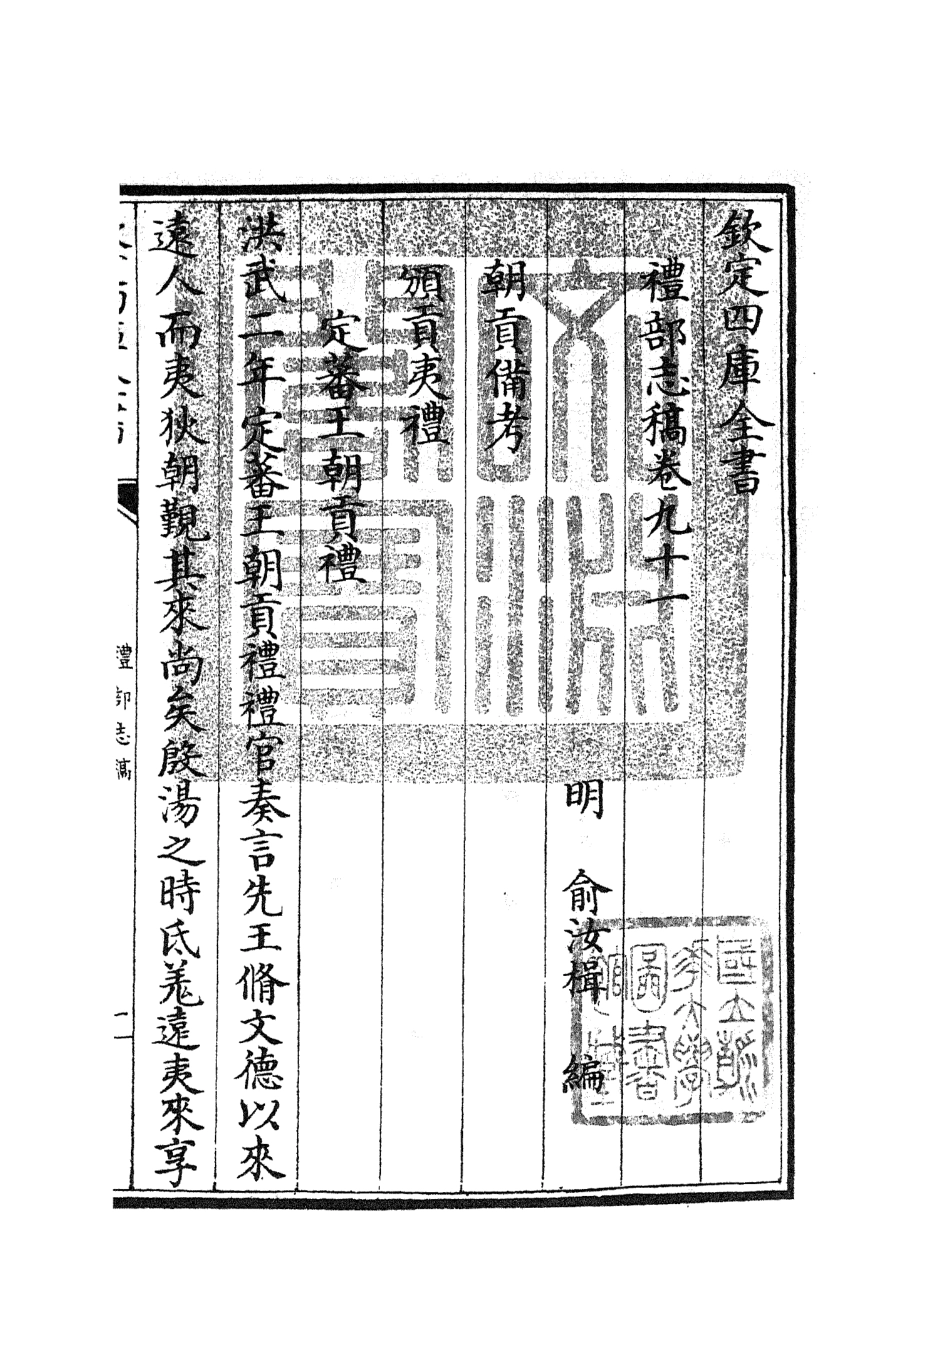 欽定四庫全書
禮部志稿卷九十一
明 俞汝楫 編
朝貢備考
頒貢夷禮
定蕃王朝貢禮
洪武二年定蕃王朝貢禮禮官奏言先王脩文德以來
遠人而夷狄朝覲其來尚矣殷湯之時氐羌遠夷來享
禮部志稿
一